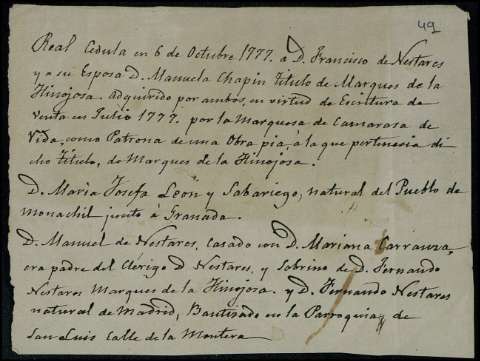 49
Real Cedula en 6 de Octubre 1777. a D. Francisco de Nestares
y a su Esposa D. Manuela Chapin titulo de Marques de la
Hinojosa. adquirido por ambos, en virtud de Escritura de
Venta en Julio 1777. por la Marquesa de Camarasa de
Vida, como Patrona de una Obra pia, á la que pertenesia di
cho titulo, de Marques de la Hinojosa.
D. Maria Josefa Leon y Sabariego, natural del Pueblo de
Monachil junto á Granada.
D. Manuel de Nestares, Casado con D. Mariana Carranza,
era padre del Clerigo D Nestares, y Sobrino de D. Fernando
Nestares Marques de la Hinojosa. y D. Fernando Nestares
natural de Madrid, Bautisado en la Parroquia de
San Luis Calle de la Montera